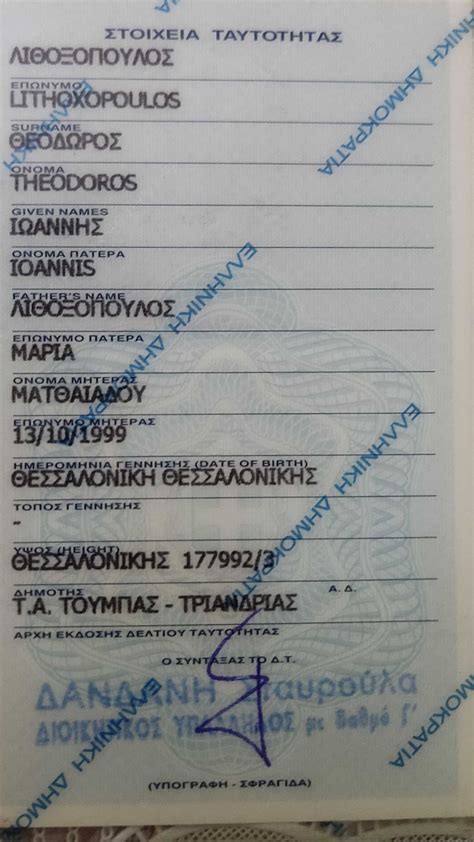 ΣΤΟΙΧΕΙΑ ΤΑΥΤΟΤΗΤΑΣ
ΛΙΘΟΞΟΠΟΥΛΟΣ
ΕΠΩΝΥΜΟ
LITHOXOPOULOS
SURNAME
ΘΕΟΔΩΡΟΣ
ΟΝΟΜΑ
THEODOROS
GIVEN NAMES
ΙΩΑΝΝΗΣ
ΟΝΟΜΑ ΠΑΤΕΡΑ
IOANNIS
FATHER'S NAME
ΛΙΘΟΞΟΠΟΥΛΟΣ
ΕΠΩΝΥΜΟ ΠΑΤΕΡΑ
ΜΑΡΙΑ
ΟΝΟΜΑ ΜΗΤΕΡΑΣ
ΜΑΤΘΑΙΑΔΟΥ
ΕΠΩΝΥΜΟ ΜΗΤΕΡΑΣ
13/10/1999
ΗΜΕΡΟΜΗΝΙΑ ΓΕΝΝΗΣΗΣ (DATE OF BIRTH)
ΘΕΣΣΑΛΟΝΙΚΗ ΘΕΣΣΑΛΟΝΙΚΗΣ
ΤΟΠΟΣ ΓΕΝΝΗΣΗΣ
-
ΥΨΟΣ (HEIGHT)
ΘΕΣΣΑΛΟΝΙΚΗΣ 177992/3
ΔΗΜΟΤΗΣ Α.Δ.
Τ.Α. ΤΟΥΜΠΑΣ - ΤΡΙΑΝΔΡΙΑΣ
ΑΡΧΗ ΕΚΔΟΣΗΣ ΔΕΛΤΙΟΥ ΤΑΥΤΟΤΗΤΑΣ
Ο ΣΥΝΤΑΞΑΣ ΤΟ Δ.Τ.
ΔΑΝΔΑΝΗ Σταυρούλα
ΔΙΟΙΚΗΤΙΚΟΣ ΥΠΑΛΛΗΛΟΣ με βαθμό Γ'
(ΥΠΟΓΡΑΦΗ - ΣΦΡΑΓΙΔΑ)
ΕΛΛΗΝΙΚΗ ΔΗΜΟΚΡΑΤΙΑ
ΕΛΛΗΝΙΚΗ ΔΗΜΟΚΡΑΤΙΑ
ΕΛΛΗΝΙΚΗ ΔΗΜΟΚΡΑΤΙΑ
ΕΛΛΗΝΙΚΗ ΔΗΜΟΚΡΑΤΙΑ
ΕΛΛΗΝΙΚΗ ΔΗΜΟΚΡΑΤΙΑ